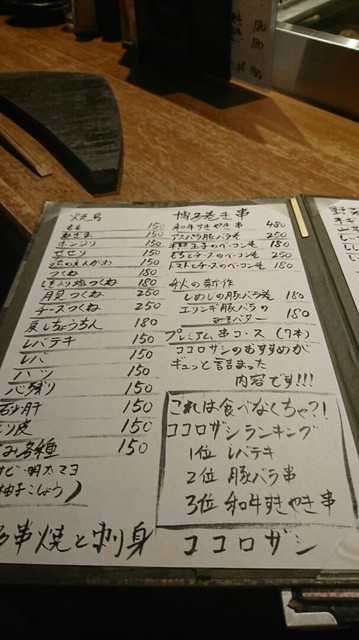 焼鳥
もも 150
ねぎま 150
ボンジリ 150
せせり 150
150
つくね 180
塩つくね 180
月見つくね 250
チーズつくね 250
炙しちょうちん 180
レバテキ 150
レバ 150
ハツ 150
心残り 150
砂肝 150
皮 150
み各種 150
び・明太マヨ
柚子こしょう)
串焼と刺身
博多巻き串
和牛すきやき串 480
アスパラ豚バラ巻 250
玉子のベーコン巻 180
もちチーズのベーコン巻 250
トマトチーズのベーコン巻 180
秋の新作
しめじの豚バラ巻 180
エリンギ豚バラの 180
バター
プレミアム串コース (7本)
ココロザシのおすすめが
ギュッと詰まった
内容です!!!
これは食べなくちゃ?!
ココロザシランキング
1位 レバテキ
2位 豚バラ串
3位 和牛すきやき串
ココロザシ